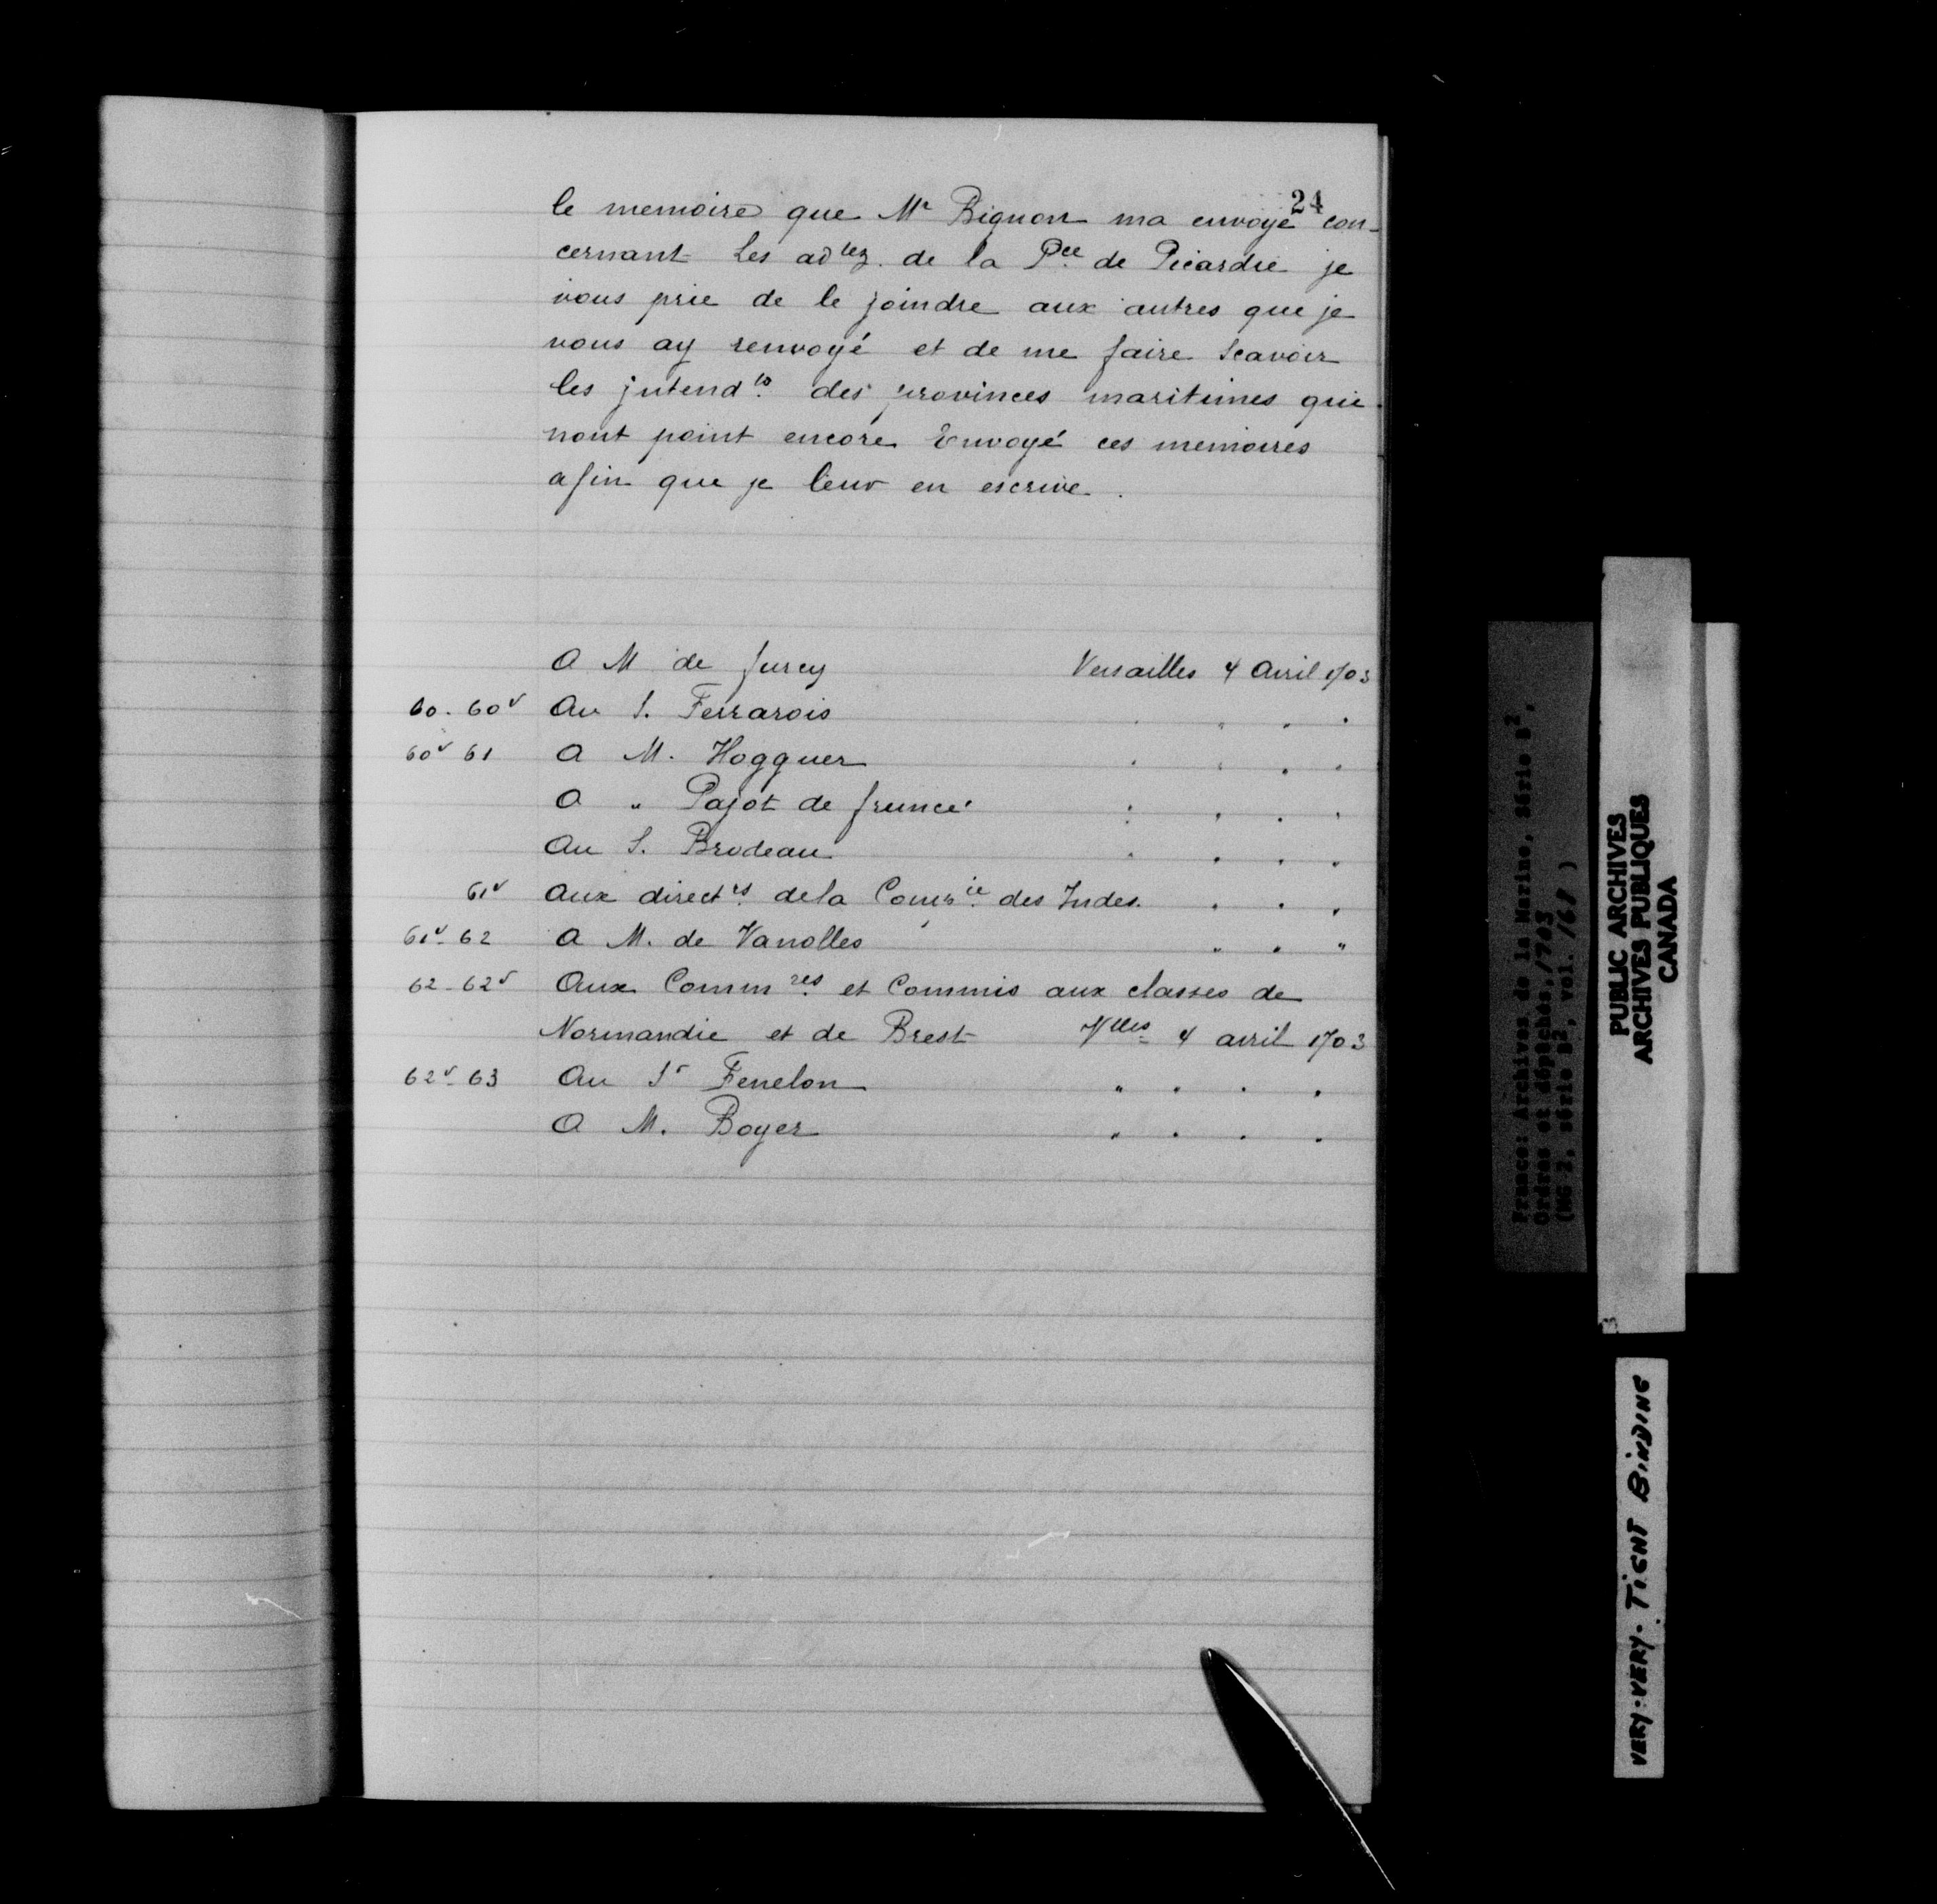 24
le memoire que Mr Bignon ma envoyé con-
cernant les adtez. de la Pce de Picardie je
vous prie de le joindre aux autres que je
vous ay renvoyé et de me faire scavoir
les jntendts des provinces maritimes qui
nont point encore Envoyé ces memoires
afin que je leur en escrive.
A M de Jurcy Versailles 4 avril 1703
60-60v Au S. Ferrarois " " " "
60v 61 A M. Hogguer " " " "
A " Pajot de " " " "
Au S. Brodeau " " " "
61v Aux directrs dela Compie des Indes. " " "
61v-62 A M. de Vanolles " " "
62-62v Aux Commres et Commis aux classes de
Normandie et de Brest Vlles 4 avril 1703
62v-63 Au Sr Fenelon " " " "
A M. Boyer " " " "
France: Archives de la Marine, Série B2,
Ordres et dépêches, 1703
(MG 2, série B2, vol. 161)
PUBLIC ARCHIVES
ARCHIVES PUBLIQUES
CANADA
3
VERY-VERY-TIGHT BINDING